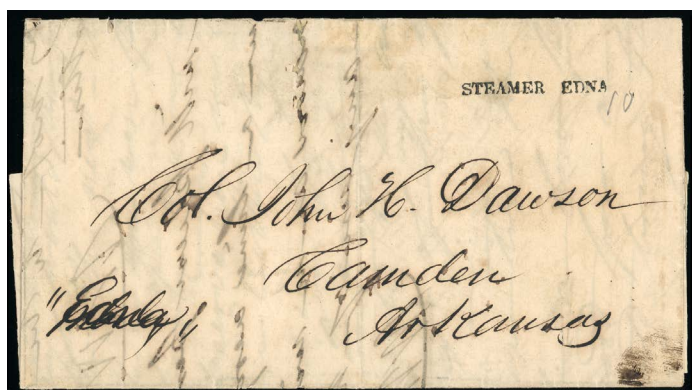 STEAMER EDNA
10
Col. John H. Dawson
Camden
"Edna"
Arkansas